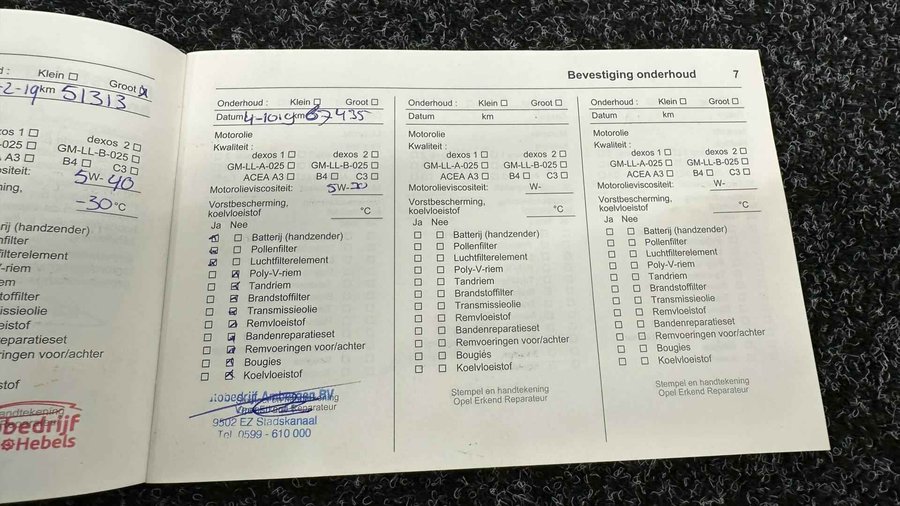 d : Klein Groot
-2-19 km 51313
os 1
dexos 2
-025 GM-LL-B-025
A3 B4 C3
ositeit: 5W-40
ming,
-30 °C
rij (handzender)
nfilter
filterelement
V-riem
em
toffilter
issieolie
eistof
reparatieset
eringen voor/achter
stof
andtekening
bedrijf
Hebels
Bevestiging onderhoud 7
Onderhoud : Klein Groot
Datum 4-10-19 km 67435
Motorolie
Kwaliteit :
dexos 1 dexos 2
GM-LL-A-025 GM-LL-B-025
ACEA A3 B4 C3
Motorolieviscositeit: 5W-30
Vorstbescherming,
koelvloeistof °C
Ja Nee
Batterij (handzender)
Pollenfilter
Luchtfilterelement
Poly-V-riem
Tandriem
Brandstoffilter
Transmissieolie
Remvloeistof
Bandenreparatieset
Remvoeringen voor/achter
Bougies
Koelvloeistof
9502 EZ Stadskanaal
Tel. 0599 - 610 000
Onderhoud : Klein Groot
Datum km
Motorolie
Kwaliteit :
dexos 1 dexos 2
GM-LL-A-025 GM-LL-B-025
ACEA A3 B4 C3
Motorolieviscositeit: W-
Vorstbescherming,
koelvloeistof °C
Ja Nee
Batterij (handzender)
Pollenfilter
Luchtfilterelement
Poly-V-riem
Tandriem
Brandstoffilter
Transmissieolie
Remvloeistof
Bandenreparatieset
Remvoeringen voor/achter
Bougies
Koelvloeistof
Stempel en handtekening
Opel Erkend Reparateur
Onderhoud : Klein Groot
Datum km
Motorolie
Kwaliteit :
dexos 1 dexos 2
GM-LL-A-025 GM-LL-B-025
ACEA A3 B4 C3
Motorolieviscositeit: W-
Vorstbescherming,
koelvloeistof °C
Ja Nee
Batterij (handzender)
Pollenfilter
Luchtfilterelement
Poly-V-riem
Tandriem
Brandstoffilter
Transmissieolie
Remvloeistof
Bandenreparatieset
Remvoeringen voor/achter
Bougies
Koelvloeistof
Stempel en handtekening
Opel Erkend Reparateur